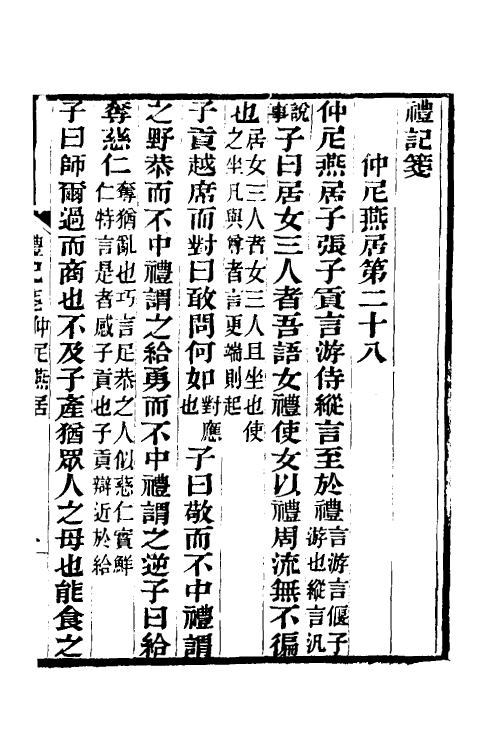 禮記箋
仲尼燕居第二十八
仲尼燕居子張子貢言游侍縱言至於禮言游言偃子游也縱言汎
說事子曰居女三人者吾語女禮使女以禮周流無不徧
也居女三人者女三人且坐也使之坐凡與尊者言更端則起
子貢越席而對曰敢問何如對應也子曰敬而不中禮謂
之野恭而不中禮謂之給勇而不中禮謂之逆子曰給
奪慈仁奪猶亂也巧言足恭之人似慈仁實鮮仁特言是者感子貢也子貢辯近於給
子曰師爾過而商也不及子產猶眾人之母也能食之
禮記箋仲尼燕居
一